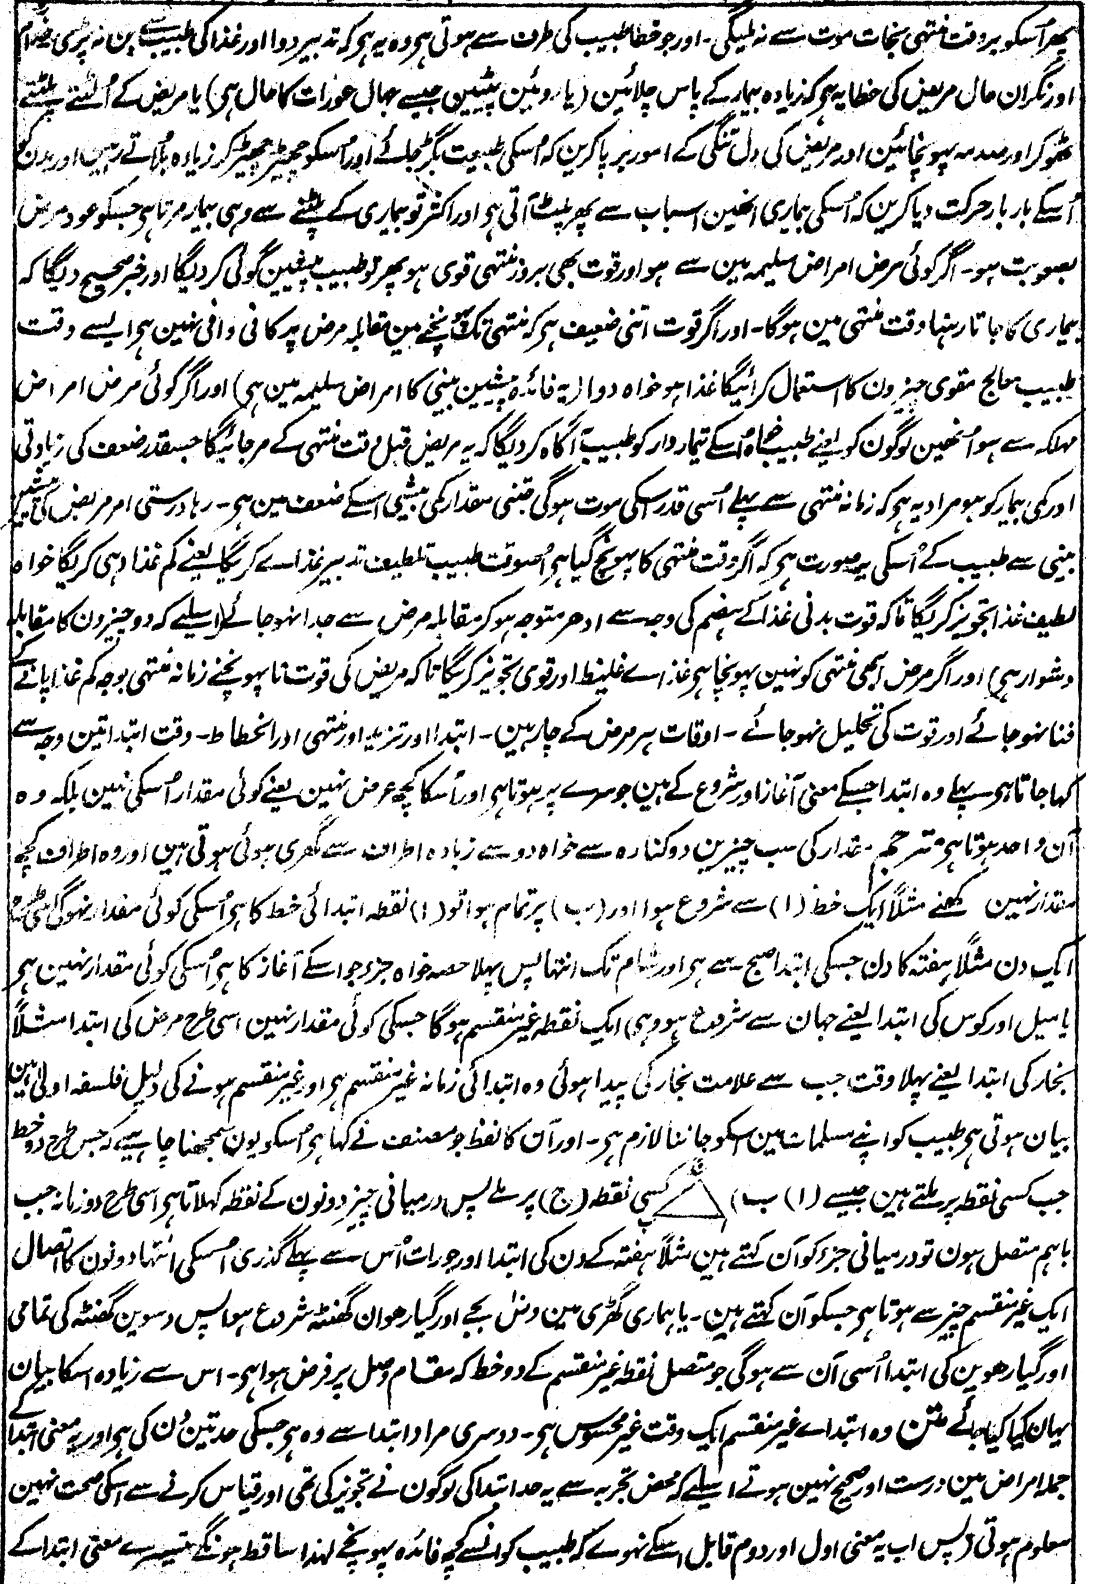 پھر اُسکو بروقت منتہی نجات موت سے نہ ملیگی۔ اور جو خطا طبیب کی طرف سے ہوتی ہی وہ یہ ہی کہ تدبیر دوا اور غذا کی طبیب سے بن نہ پڑی خدام
اور نگران حال مریض کی خطا یہ ہی کہ زیادہ بیمار کے پاس چلائین (یا روئین پیٹین جیسے جہال عورات کا حال ہی) یا مریض کے اُلٹتے پلٹتے
ٹھوکر اور صدمہ پہونچائین اور مریض کی دل تنگی کے امور برپا کرین کہ اُسکی طبیعت بگڑ جائے اور اُسکو چھیڑ چھیڑ کر زیادہ بلاتے رہین اور بدن کو
اُسکے بار بار حرکت دیا کرین کہ اُسکی بیماری انھین اسباب سے پھر پلٹ آتی ہی اور اکثر تو بیماری کے پلٹنے سے وہی بیمار مرتا ہی جسکو عود مرض
بصعوبت ہو۔ اگر کوئی مرض امراض سلیمہ مین سے ہو اور قوت بھی بروز منتہی قوی ہو پھر تو طبیب پیشین گوئی کر دیگا اور خبر صحیح دیگا کہ
بیماری کا جاتا رہنا وقت منتہی مین ہوگا۔ اور اگر قوت اتنی ضعیف ہی کہ منتہی تک پہونچنے مین مقابلہ مرض پر کافی وافی نہین ہی ایسے وقت
طبیب معالج مقوی چیزون کا استعمال کرائیگا غذا ہو خواہ دوا (یہ فائدہ پیشین بینی کا امراض سلیمہ مین ہی) اور اگر کوئی مرض امراض
مہلکہ سے ہو اُنھین لوگون کو یعنے طبیب خواہ اُسکے تیماردار کو طبیب آگاہ کر دیگا کہ یہ مریض قبل وقت منتہی کے مرجائیگا جسقدر ضعف کی زیادتی
اور کمی بیمار کو ہو مراد یہ ہی کہ زمانہ منتہی سے پہلے اُسی قدر اسکی موت ہوگی جتنی مقدار کمی بیشی اسکے ضعف مین ہی۔ رہا درستی امر مریض کی پیشین
بینی سے طبیب کے اُسکی یہ صورت ہی کہ اگر وقت منتہی کا پہونچ گیا ہی اُسوقت طبیب تلطیف تدبیر غذا سے کریگا یعنے کم غذا دہی کریگا خواہ
لطیف غذا تجویز کریگا تاکہ قوت بدنی غذا کے ہضم کی وجہ سے ادھر متوجہ ہوکر مقابلہ مرض سے جدا نہو جائے (اسلیے کہ دو چیزون کا مقابلہ
دشوار ہی) اور اگر مرض ابھی منتہی کو نہین پہونچا ہی غذا سے غلیظ اور قوی تجویز کریگا تاکہ مریض کی قوت تا پہونچنے زمانہ منتہی بوجہ کم غذا پانے کے
فنا نہو جائے اور قوت کی تحلیل نہو جائے۔ اوقات ہر مرض کے چار ہین۔ ابتدا اور تزید اور منتہی اور انحطاط۔ وقت ابتدا تین وجہ سے
کہا جاتا ہی پہلے وہ ابتدا جسکے معنی آغاز اور شروع کے ہین جو سرے پر ہوتا ہی اور اُسکا کچھ عرض نہین یعنے کوئی مقدار اُسکی نہین بلکہ وہ
آن واحد ہوتا ہی مترجم۔ مقدار کی سب چیزین دو کنارہ سے خواہ دو سے زیادہ اطراف سے گھری ہوئی ہوتی ہین اور وہ اطراف کچھ
مقدار نہین رکھتے مثلاً ایک خط (ا) سے شروع ہوا اور (ب) پر تمام ہوا تو (ا) نقطہ ابتدائی خط کا ہی اُسکی کوئی مقدار نہوگی اسی طرح
ایک دن مثلاً ہفتہ کا دن جسکی ابتدا صبح سے ہی اور شام تک انتہا پس پہلا حصہ خواہ جزء جو اسکے آغاز کا ہی اُسکی کوئی مقدار نہین ہی
یا میل اور کوس کی ابتدا یعنے جہان سے شروع ہو وہی ایک نقطہ غیر منقسم ہوگا جسکی کوئی مقدار نہین اسی طرح مرض کی ابتدا مثلاً
بخار کی ابتدا یعنے پہلا وقت جب سے علامت بخار کی پیدا ہوئی وہ ابتدائی زمانہ غیر منقسم ہی اور غیر منقسم ہونے کی دلیل فلسفہ اولیٰ مین
بیان ہوتی ہی طبیب کو اپنے مسلمات مین اسکو جاننا لازم ہی۔ اور آن کا لفظ جو مصنف نے کہا ہی اُسکو یون سمجھنا چاہیے کہ جس طرح دو خط
جب کسی نقطہ پر ملتے ہین جیسے (ا) (ب) کسی نقطہ (ج) پر ملے پس درمیانی چیز دونون کے نقطہ کہلاتا ہی اسی طرح دو زمانہ جب
باہم متصل ہون تو درمیانی جزء کو آن کہتے ہین مثلاً ہفتہ کے دن کی ابتدا اور جو رات اُس سے پہلے گذری اُسکی انتہا دونون کا اتصال
ایک غیر منقسم چیز سے ہوتا ہی جسکو آن کہتے ہین۔ یا ہماری گھڑی مین دس بجے اور گیارھوان گھنٹہ شروع ہوا پس دسوین گھنٹہ کی تمامی
اور گیارھوین کی ابتدا اُسی آن سے ہوگی جو متصل نقطہ غیر منقسم کے دو خط کہ مقام وصل پر فرض ہوا ہی۔ اس سے زیادہ اسکا بیان
یہان کیا کیا جائے متن وہ ابتداے غیر منقسم ایک وقت غیر محسوس ہی۔ دوسری مراد ابتدا سے وہ ہی جسکی حد تین دن کی ہی اور یہ معنی ابتدا کے
جملہ امراض مین درست اور صحیح نہین ہوتے اسلیے کہ محض تجربہ سے یہ حد ابتدا کی لوگون نے تجویز کی تھی اور قیاس کرنے سے اسکی صحت نہین
معلوم ہوتی (پس اب یہ معنی اول اور دوم قابل اسکے نہوے کہ طبیب کو انسے کچھ فائدہ پہونچے لہذا ساقط ہونگے تیسرے معنی ابتدا کے